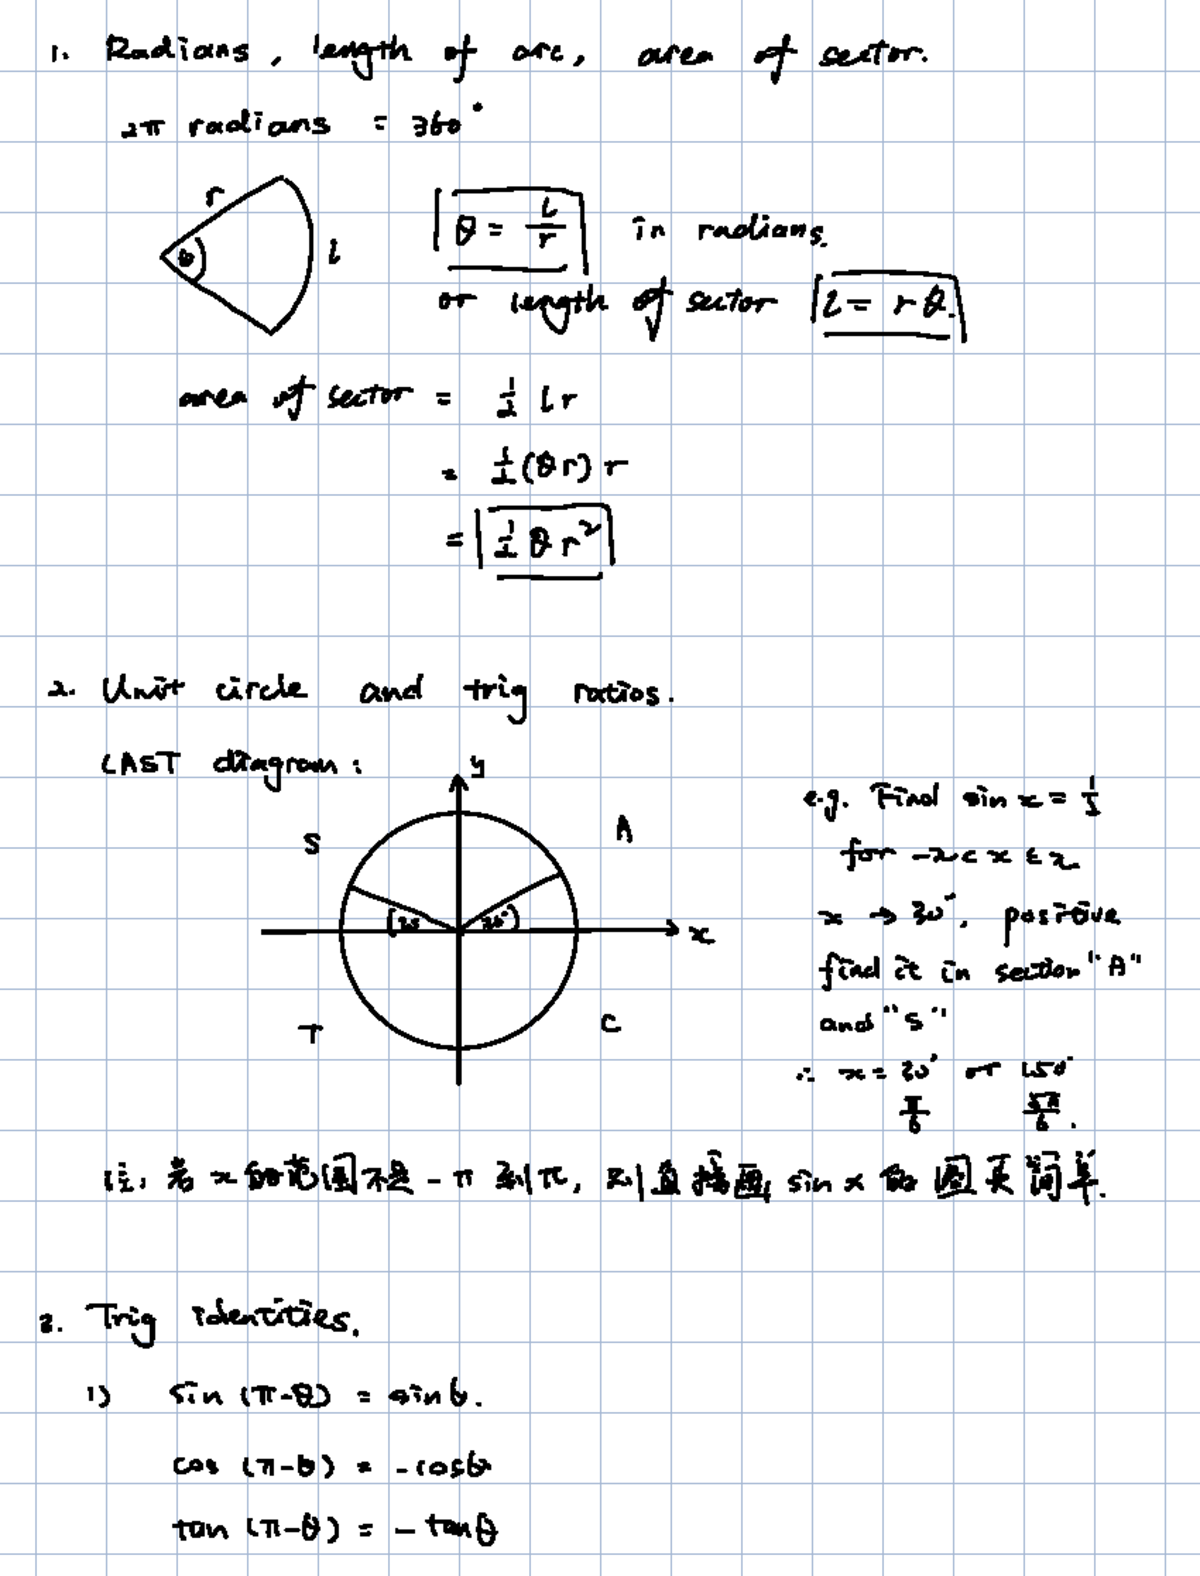 1. Radians, length of arc, area of sector.
2π radians = 360°
r
θ
l
θ = l/r in radians.
or length of sector l = rθ.
area of sector = 1/2 lr
= 1/2 (θr) r
= 1/2 θ r²
2. Unit circle and trig ratios.
CAST diagram:
y
S
A
30°
x
T
C
e.g. Find sin x = 1/2
for -π < x ≤ π
x → 30°, positive
find it in section "A"
and "S"
∴ x = 30° or 150°
π/6 5π/6.
注: 若 x 的范围不是 -π 到 π, 则直接画 sin x 的图更简单.
3. Trig identities.
1) sin (π-θ) = sinθ.
cos (π-θ) = -cosθ
tan (π-θ) = - tanθ